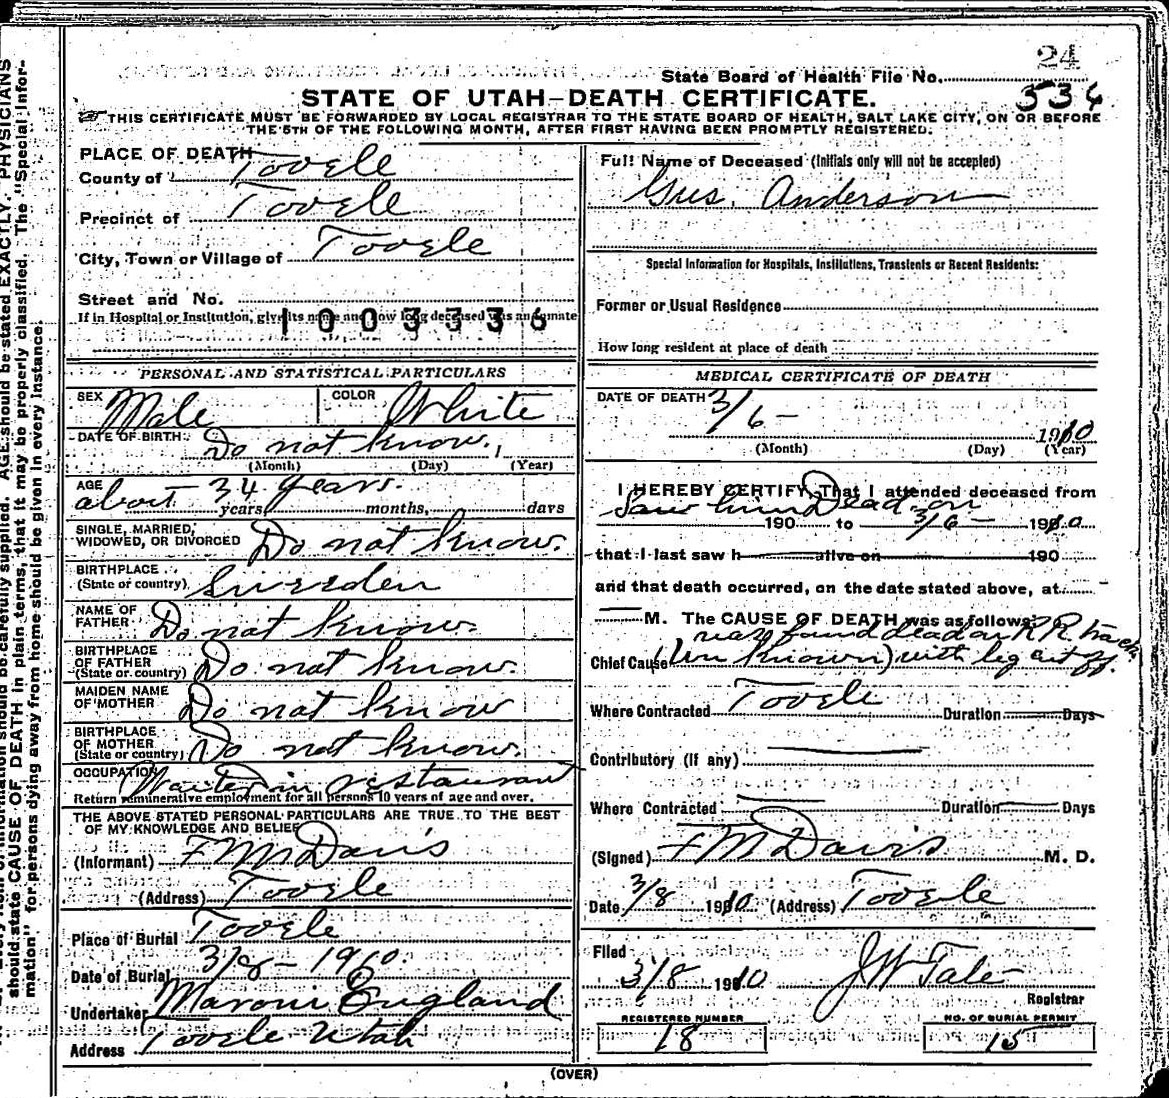 24
State Board of Health File No. 534
STATE OF UTAH—DEATH CERTIFICATE.
THIS CERTIFICATE MUST BE FORWARDED BY LOCAL REGISTRAR TO THE STATE BOARD OF HEALTH, SALT LAKE CITY, ON OR BEFORE
THE 5TH OF THE FOLLOWING MONTH, AFTER FIRST HAVING BEEN PROMPTLY REGISTERED.
PLACE OF DEATH
County of Tooele
Precinct of Tooele
City, Town or Village of Tooele
Street and No.
If in Hospital or Institution, give its name and how long deceased was an inmate
1003336
PERSONAL AND STATISTICAL PARTICULARS
SEX Male COLOR White
DATE OF BIRTH Do not know.
(Month) (Day) (Year)
AGE about 34 years.
years months, days
SINGLE, MARRIED,
WIDOWED, OR DIVORCED Do not know.
BIRTHPLACE
(State or country) Sweden
NAME OF
FATHER Do not know.
BIRTHPLACE
OF FATHER
(State or country) Do not know.
MAIDEN NAME
OF MOTHER Do not know
BIRTHPLACE
OF MOTHER
(State or country) Do not know.
OCCUPATION Waiter in restaurant
Return remunerative employment for all persons 10 years of age and over.
THE ABOVE STATED PERSONAL PARTICULARS ARE TRUE TO THE BEST
OF MY KNOWLEDGE AND BELIEF
(Informant) F M Davis
(Address) Tooele
Place of Burial Tooele
Date of Burial 3/8 - 1910
Undertaker Maroni England
Address Tooele Utah
Full Name of Deceased (Initials only will not be accepted)
Gus. Anderson
Special Information for Hospitals, Institutions, Transients or Recent Residents:
Former or Usual Residence
How long resident at place of death
MEDICAL CERTIFICATE OF DEATH
DATE OF DEATH 3/6 - 1910
(Month) (Day) (Year)
I HEREBY CERTIFY, That I attended deceased from
Saw him Dead on
190 to 3/6 - 1910
that I last saw h alive on 190
and that death occurred, on the date stated above, at
M. The CAUSE OF DEATH was as follows:
was found dead on R R track
Chief Cause (Un Known) with leg cut off.
Where Contracted Tooele Duration Days
Contributory (if any)
Where Contracted Duration Days
(Signed) F M Davis M. D.
Date 3/8 1910 (Address) Tooele
Filed
3/8 1910 J W Tate
Registrar
REGISTERED NUMBER
18
NO. OF BURIAL PERMIT
15
(OVER)
should be carefully supplied. AGE should be stated EXACTLY. PHYSICIANS
should state CAUSE OF DEATH in plain terms, that it may be properly classified. The "Special Infor-
mation" for persons dying away from home should be given in every instance.